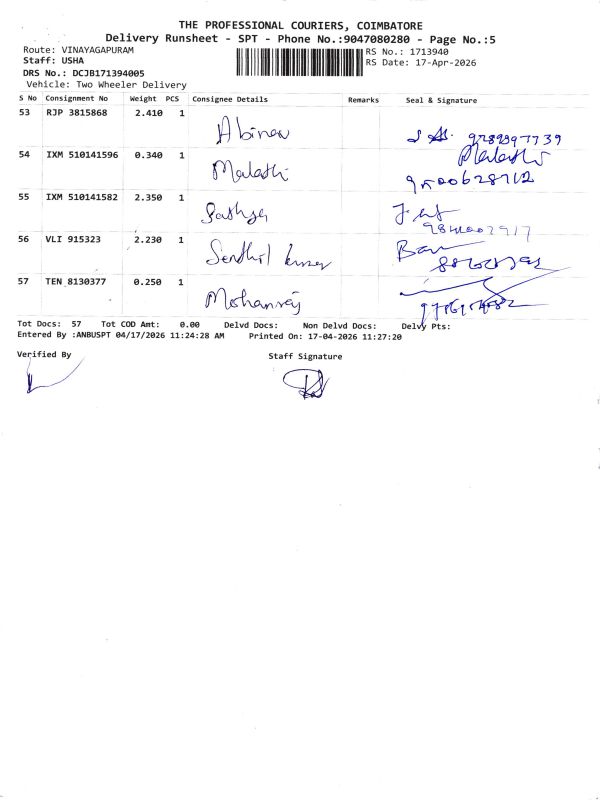 THE PROFESSIONAL COURIERS, COIMBATORE
Delivery Runsheet - SPT - Phone No.:9047080280 - Page No.:5
Route: VINAYAGAPURAM RS No.: 1713940
Staff: USHA RS Date: 17-Apr-2026
DRS No.: DCJB171394005
Vehicle: Two Wheeler Delivery
S No Consignment No Weight PCS Consignee Details Remarks Seal & Signature
53 RJP 3815868 2.410 1 Abinav
54 IXM 510141596 0.340 1 Malathi Malathi
9500628712
55 IXM 510141582 2.350 1 Sathya
56 VLI 915323 2.230 1 Senthil kumar
57 TEN 8130377 0.250 1 Mohanraj
Tot Docs: 57 Tot COD Amt: 0.00 Delvd Docs: Non Delvd Docs: Delvy Pts:
Entered By :ANBUSPT 04/17/2026 11:24:28 AM Printed On: 17-04-2026 11:27:20
Verified By Staff Signature